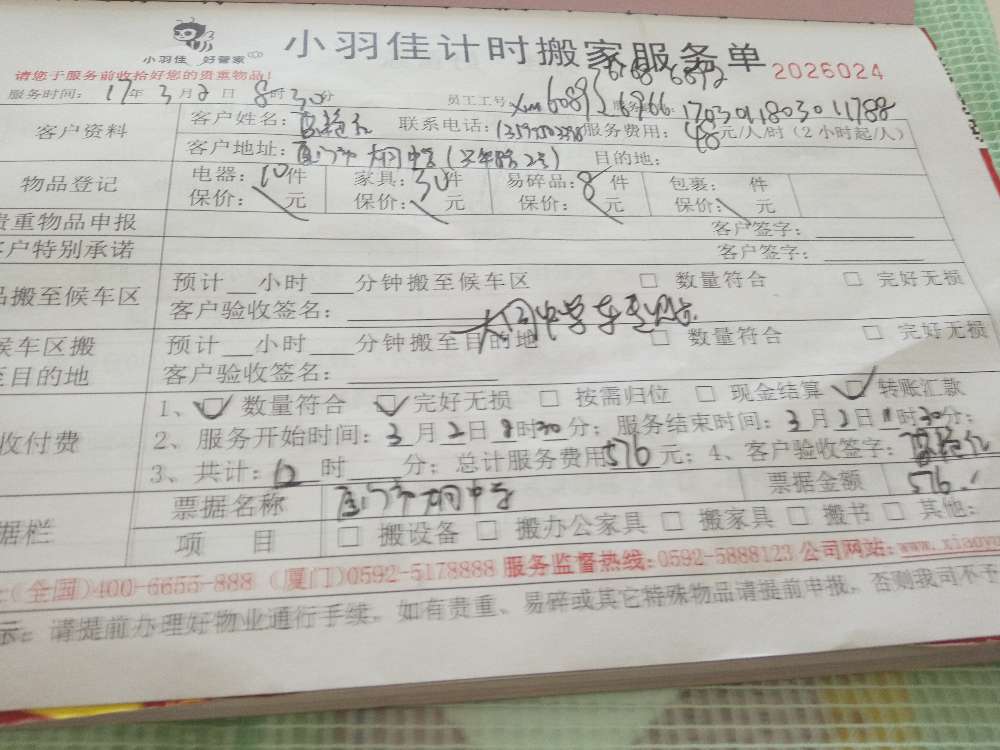 小羽佳 好管家
小羽佳计时搬家服务单 2026024
请您于服务前收拾好您的贵重物品!
服务时间: 17年 3月 2日 8时30分 员工工号
客户资料 客户姓名: 联系电话: 服务费用: 48元/人/时(2小时起/人)
客户地址: 厦门市大同中学 目的地:
物品登记 电器: 10件 家具: 30件 易碎品: 8件 包裹: 件
保价: 元 保价: 元 保价: 元 保价: 元
贵重物品申报 客户签字:
客户特别承诺 客户签字:
品搬至候车区 预计 小时 分钟搬至候车区 □ 数量符合 □ 完好无损
客户验收签名: 大同中学
候车区搬至目的地 预计 小时 分钟搬至目的地 □ 数量符合 □ 完好无损
客户验收签名:
收付费 1、☑ 数量符合 ☑ 完好无损 □ 按需归位 □ 现金结算 ☑ 转账汇款
2、服务开始时间: 3月2日 8时30分; 服务结束时间: 3月2日11时30分;
3、共计: 12时 分; 总计服务费用576元; 4、客户验收签字:
据栏 票据名称 厦门市大同中学 票据金额 576
项 目 □ 搬设备 □ 搬办公家具 □ 搬家具 □ 搬书 □ 其他:
:(全国)400-6655-888 (厦门)0592-5178888 服务监督热线:0592-5888123 公司网站:www.xiaoyu
示: 请提前办理好物业通行手续, 如有贵重、易碎或其它特殊物品请提前申报, 否则我司不予